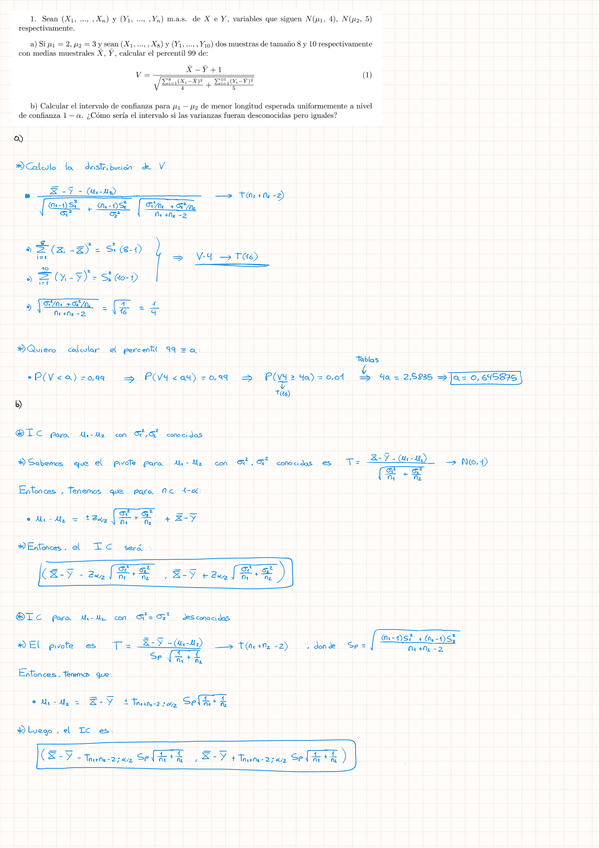 1. Sean (X₁, ..., , Xₙ) y (Y₁, ..., , Yₙ) m.a.s. de X e Y, variables que siguen N(μ₁, 4), N(μ₂, 5)
respectivamente.
a) Si μ₁ = 2, μ₂ = 3 y sean (X₁, ..., , X₈) y (Y₁, ..., , Y₁₀) dos muestras de tamaño 8 y 10 respectivamente
con medias muestrales X̄, Ȳ, calcular el percentil 99 de:
V = (X̄ − Ȳ + 1) / √( ∑ᵢ₌₁⁸(Xᵢ−X̄)²/4 + ∑ᵢ₌₁¹⁰(Yᵢ−Ȳ)²/5 ) (1)
b) Calcular el intervalo de confianza para μ₁ − μ₂ de menor longitud esperada uniformemente a nivel
de confianza 1 − α. ¿Cómo sería el intervalo si las varianzas fueran desconocidas pero iguales?
a)
*) Calculo la distribución de V
▪ (X̄ - Ȳ - (μ₁-μ₂)) / ( √( (n₁-1)S₁²/σ₁² + (n₂-1)S₂²/σ₂² ) √( (σ₁²/n₁ + σ₂²/n₂)/(n₁+n₂-2) ) ) → T(n₁+n₂-2)
*) ∑ᵢ₌₁⁸ (Xᵢ - X̄)² = S₁² (8-1)
*) ∑ᵢ₌₁¹⁰ (Yᵢ - Ȳ)² = S₂² (10-1)
⇒ V·4 → T(16)
*) √( (σ₁²/n₁ + σ₂²/n₂)/(n₁+n₂-2) ) = √(1/16) = 1/4
*) Quiero calcular el percentil 99 ≡ a.
Tablas
• P(V < a) = 0,99 ⇒ P(V4 < a4) = 0,99 ⇒ P(V4 ≥ 4a) = 0,01 ⇒ 4a = 2,5835 ⇒ a = 0,645875
T(16)
b)
*) IC para μ₁-μ₂ con σ₁², σ₂² conocidas
*) Sabemos que el pivote para μ₁-μ₂ con σ₁², σ₂² conocidas es T = (X̄ - Ȳ - (μ₁-μ₂)) / √(σ₁²/n₁ + σ₂²/n₂) → N(0,1)
Entonces, Tenemos que para n.c. 1-α:
• μ₁-μ₂ = ± Zα/₂ √(σ₁²/n₁ + σ₂²/n₂) + X̄ - Ȳ
*) Entonces, el IC será:
( X̄ - Ȳ - Zα/₂ √(σ₁²/n₁ + σ₂²/n₂) , X̄ - Ȳ + Zα/₂ √(σ₁²/n₁ + σ₂²/n₂) )
*) IC para μ₁-μ₂ con σ₁² = σ₂² desconocidas
*) El pivote es T = (X̄ - Ȳ - (μ₁-μ₂)) / ( Sp √(1/n₁ + 1/n₂) ) → T(n₁+n₂-2) , donde Sp = √( ((n₁-1)S₁² + (n₂-1)S₂²)/(n₁+n₂-2) )
Entonces, Tenemos que
• μ₁-μ₂ = X̄ - Ȳ ± Tn₁+n₂-2;α/₂ Sp √(1/n₁ + 1/n₂)
*) Luego, el IC es:
( X̄ - Ȳ - Tn₁+n₂-2;α/₂ Sp √(1/n₁ + 1/n₂) , X̄ - Ȳ + Tn₁+n₂-2;α/₂ Sp √(1/n₁ + 1/n₂) )